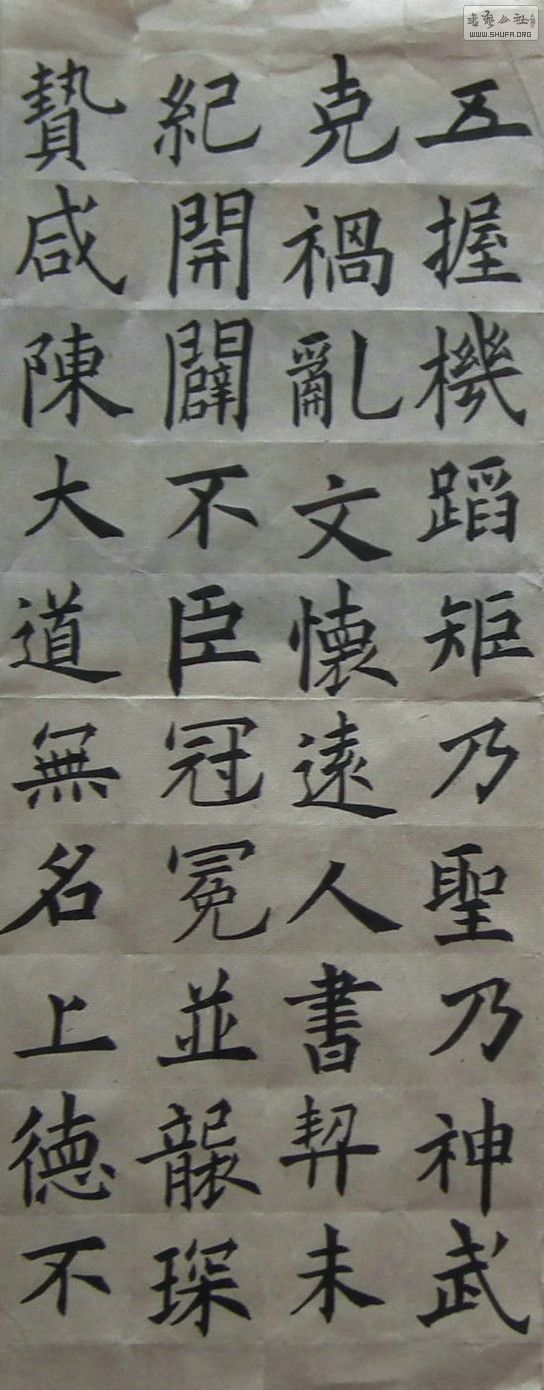 五握機蹈矩乃聖乃神武
克禍亂文懷遠人書契未
紀開闢不臣冠冕並襲琛
贄咸陳大道無名上德不
WWW.SHUFA.ORG